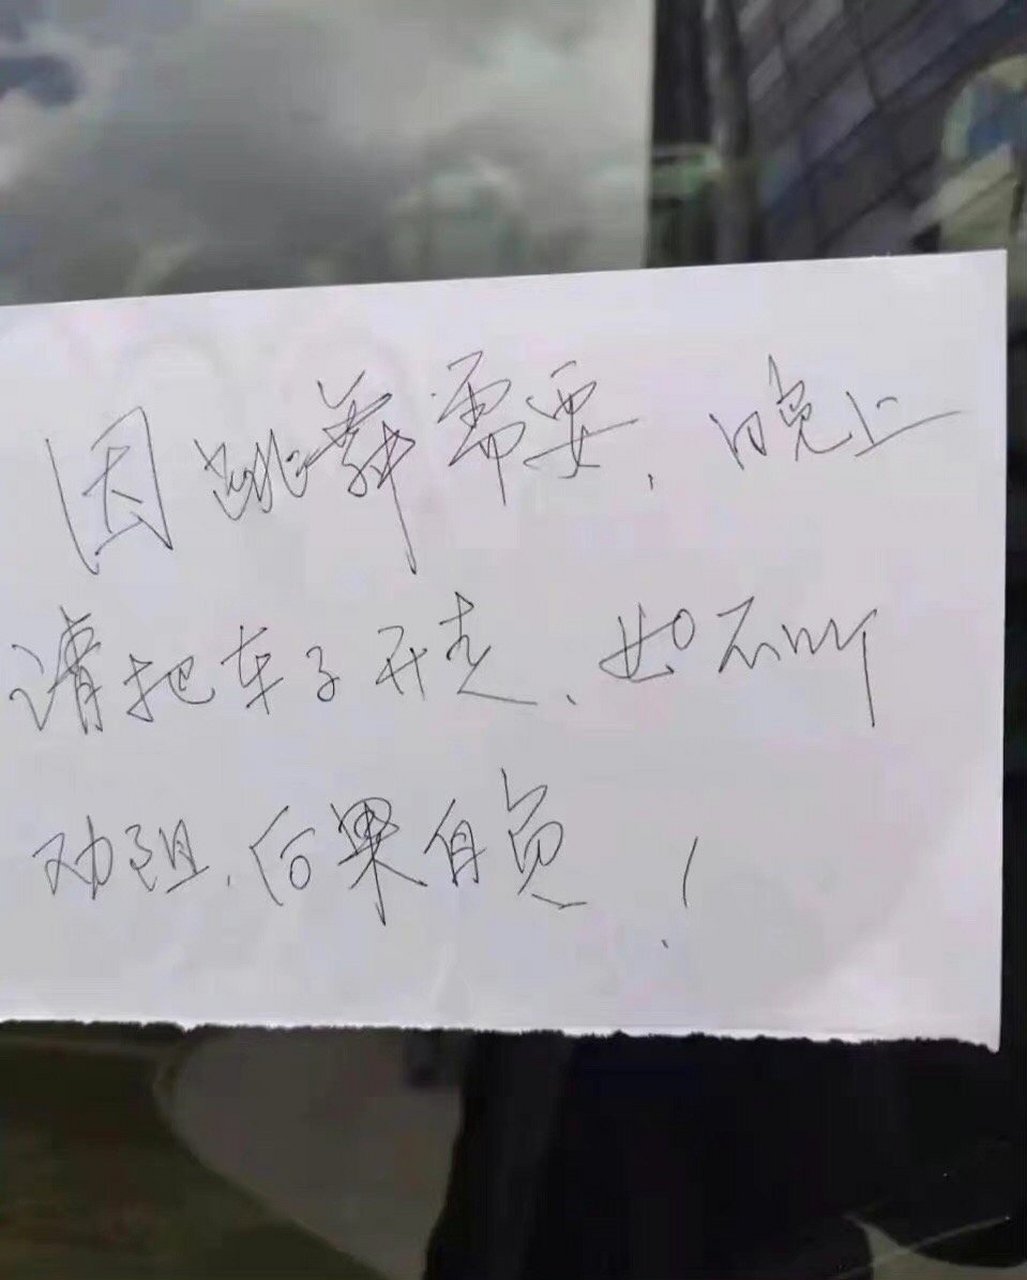 因跳舞需要，晚上
请把车子开走、如不听
劝阻，后果自负！